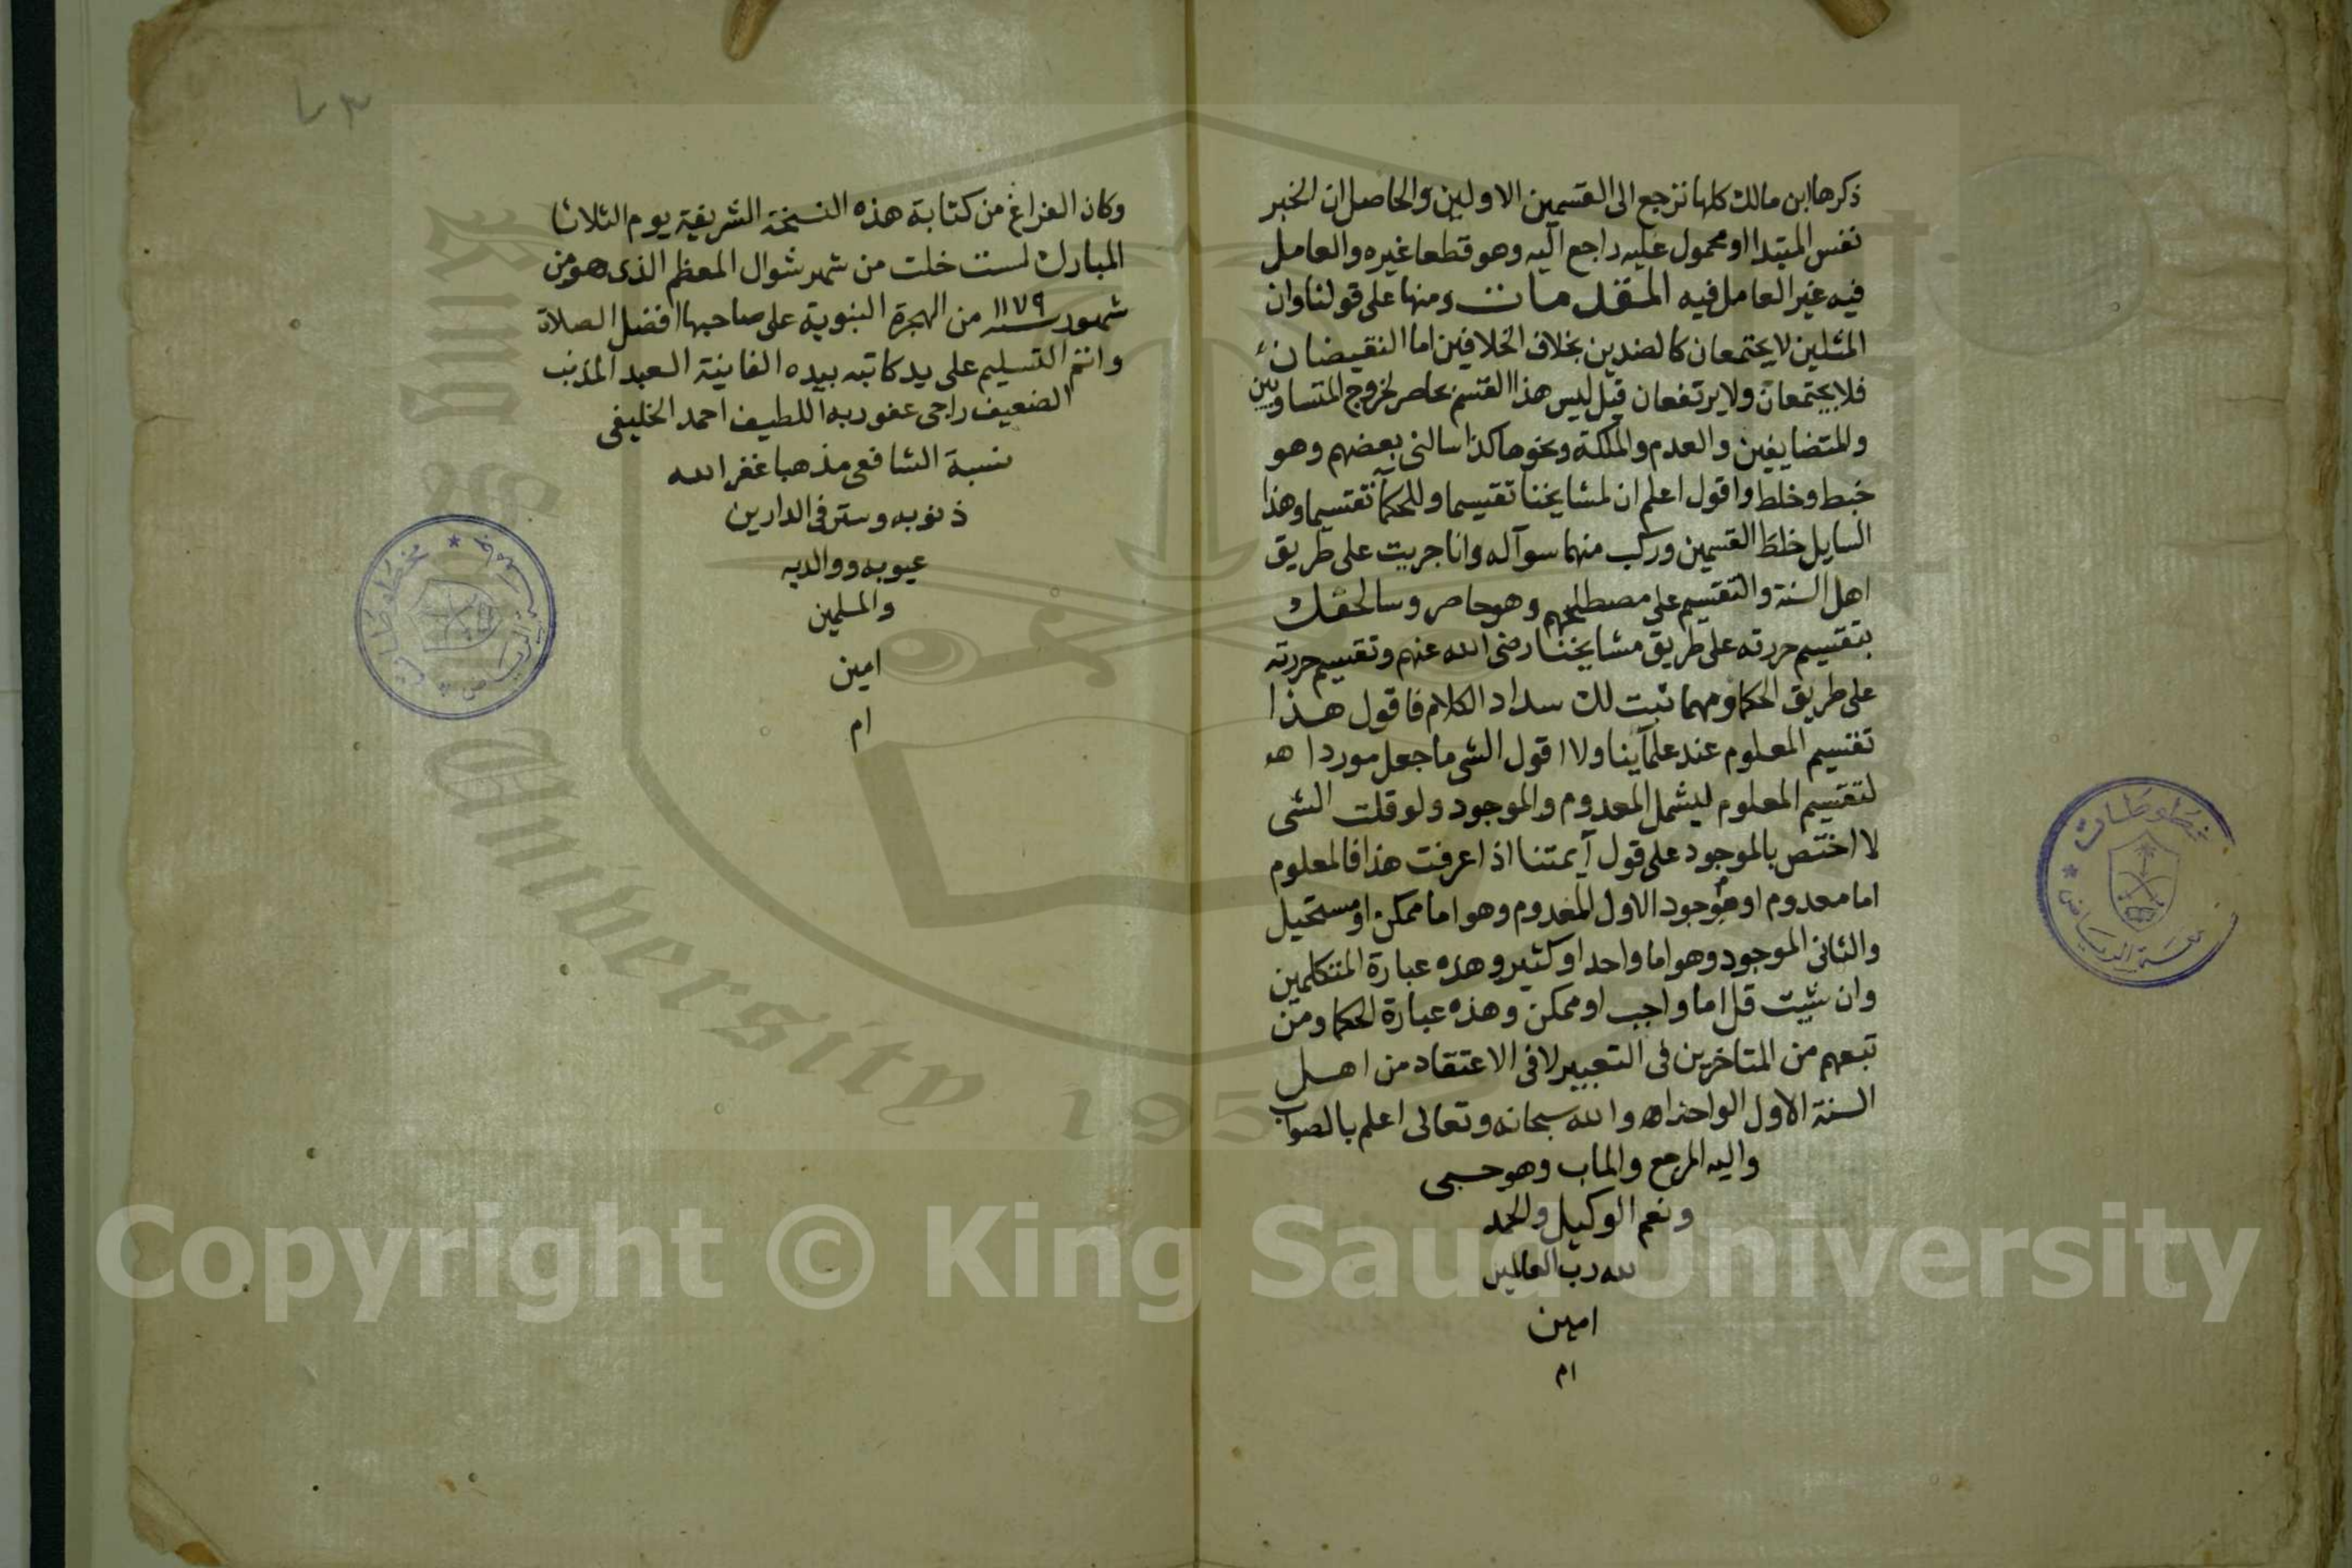 ذكرها ابن مالك كلها نرجع الى القسمين الاولين والحاصل ان الخبر
نفس المبتدا او محمول عليه راجع اليه وهو قطعا غيره والعامل
فيه غير العامل فيه المقدمات ومنها على قولنا وان
المثلين لا يجتمعان كالضدين بخلاف الخلافين اما النقيضان
فلا يجتمعان ولا يرتفعان قيل ليس هذا القسم بحاصر لخروج المتساويين
والمتضايفين والعدم والملكة ونحوها كذا سالني بعضهم وهو
خبط وخلط واقول اعلم ان لمشايخنا تقسيما وللحكمآ تقسيما وهذا
السايل خلط القسمين وركب منهما سوآله وانا جريت على طريق
اهل السنة والتقسيم على مصطلحهم وهو حاصر وسالحقك
بتقسيم حررته على طريق مشايخنا رضى الله عنهم وتقسيم حررته
على طريق الحكما ومهما ثبت لك سداد الكلام فاقول هذا
تقسيم المعلوم عند علمآينا ولا اقول الشى ما جعل موردا هو
لتقسيم المعلوم ليشمل المعدوم والموجود ولو قلت الشى
لا اختص بالموجود على قول آيمتنا اذا عرفت هذا فالمعلوم
اما معدوم او موجود الاول المعدوم وهو اما ممكن او مستحيل
والثانى الموجود وهو اما واحد او كثير وهذه عبارة المتكلمين
وان شيت قل اما واجب او ممكن وهذه عبارة الحكما ومن
تبعهم من المتاخرين فى التعبير لا فى الاعتقاد من اهل
السنة الاول الواحد اه والله سبحانه وتعالى اعلم بالصواب
واليه المرجع والماب وهو حسبى
ونعم الوكيل والحمد
لله رب العالمين
امين
ام
وكان الفراغ من كتابة هذه النسخة الشريفة يوم الثلاثا
المبارك لست خلت من شهر شوال المعظم الذى هو من
شهور سنة ١١٧٩ من الهجرة النبوية على صاحبها افضل الصلاة
واتم التسليم على يد كاتبه بيده الفانية العبد المذنب
الضعيف راجى عفو ربه اللطيف احمد الخليفى
نسبة الشافعى مذهبا غفر الله
ذنوبه وستر فى الدارين
عيوبه ووالديه
والمسلمين
امين
ام
مخطوطات
مخطوطات
King Saud University 1957
Copyright © King Saud University